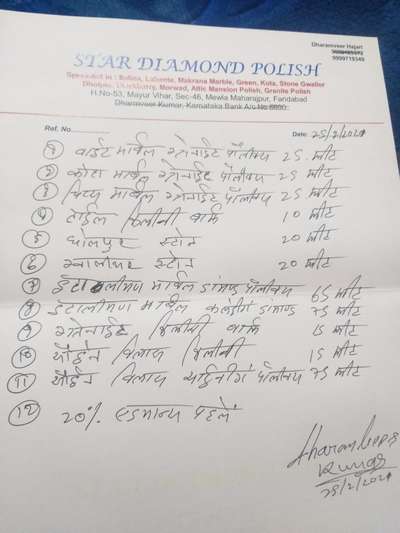 Dharamveer Hajari
9999719349
STAR DIAMOND POLISH
Specialist in : Italina, Labente, Makrana Marble, Green, Kota, Stone Gwalior
Dholpur, Morwad, Attic Mansion Polish, Granite Polish
H.No-53, Mayur Vihar, Sec-46, Mewla Maharajpur, Faridabad
Dharamveer Kumar, Karnataka Bank A/c No
Ref. No. Date: 25/2/2021
1 वाईट मार्बल ग्रेनाईट पॉलीश 25 फीट
2 कोटा मार्बल ग्रेनाईट पॉलीश 25 फीट
3 मार्बल ग्रेनाईट पॉलीश 25 फीट
4 टाईल क्लिनीं वर्क 10 फीट
5 धोलपुर स्टोन 20 फीट
6 ग्वालीयर स्टोन 20 फीट
7 ईटालीयन मार्बल डांमण्ड पॉलीश 65 फीट
8 ईटालीयन मार्बल डांमण्ड 75 फीट
9 ग्रेनाईट क्लिनीं वर्क 15 फीट
10 क्लिनीं 15 फीट
11 पॉलीश 75 फीट
12 20% एडभान्स पहले
Kumar
25/2/2021